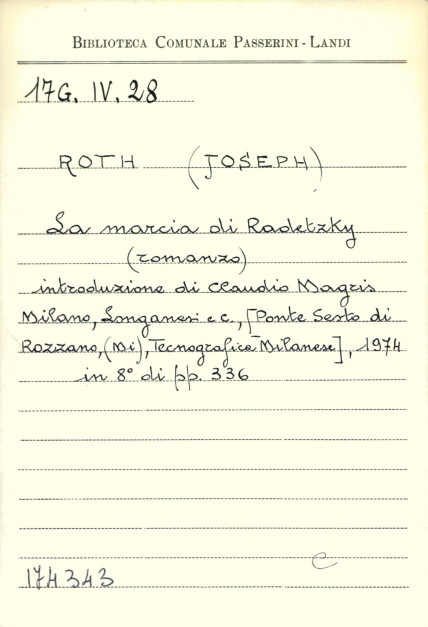 BIBLIOTECA COMUNALE PASSERINI - LANDI
17G. IV. 28
ROTH (JOSEPH)
La marcia di Radetzky
(romanzo)
introduzione di Claudio Magris
Milano, Longanesi e c., [Ponte Sesto di
Rozzano, (Mi), Tecnografica Milanese], 1974
in 8° di pp. 336
C
174343